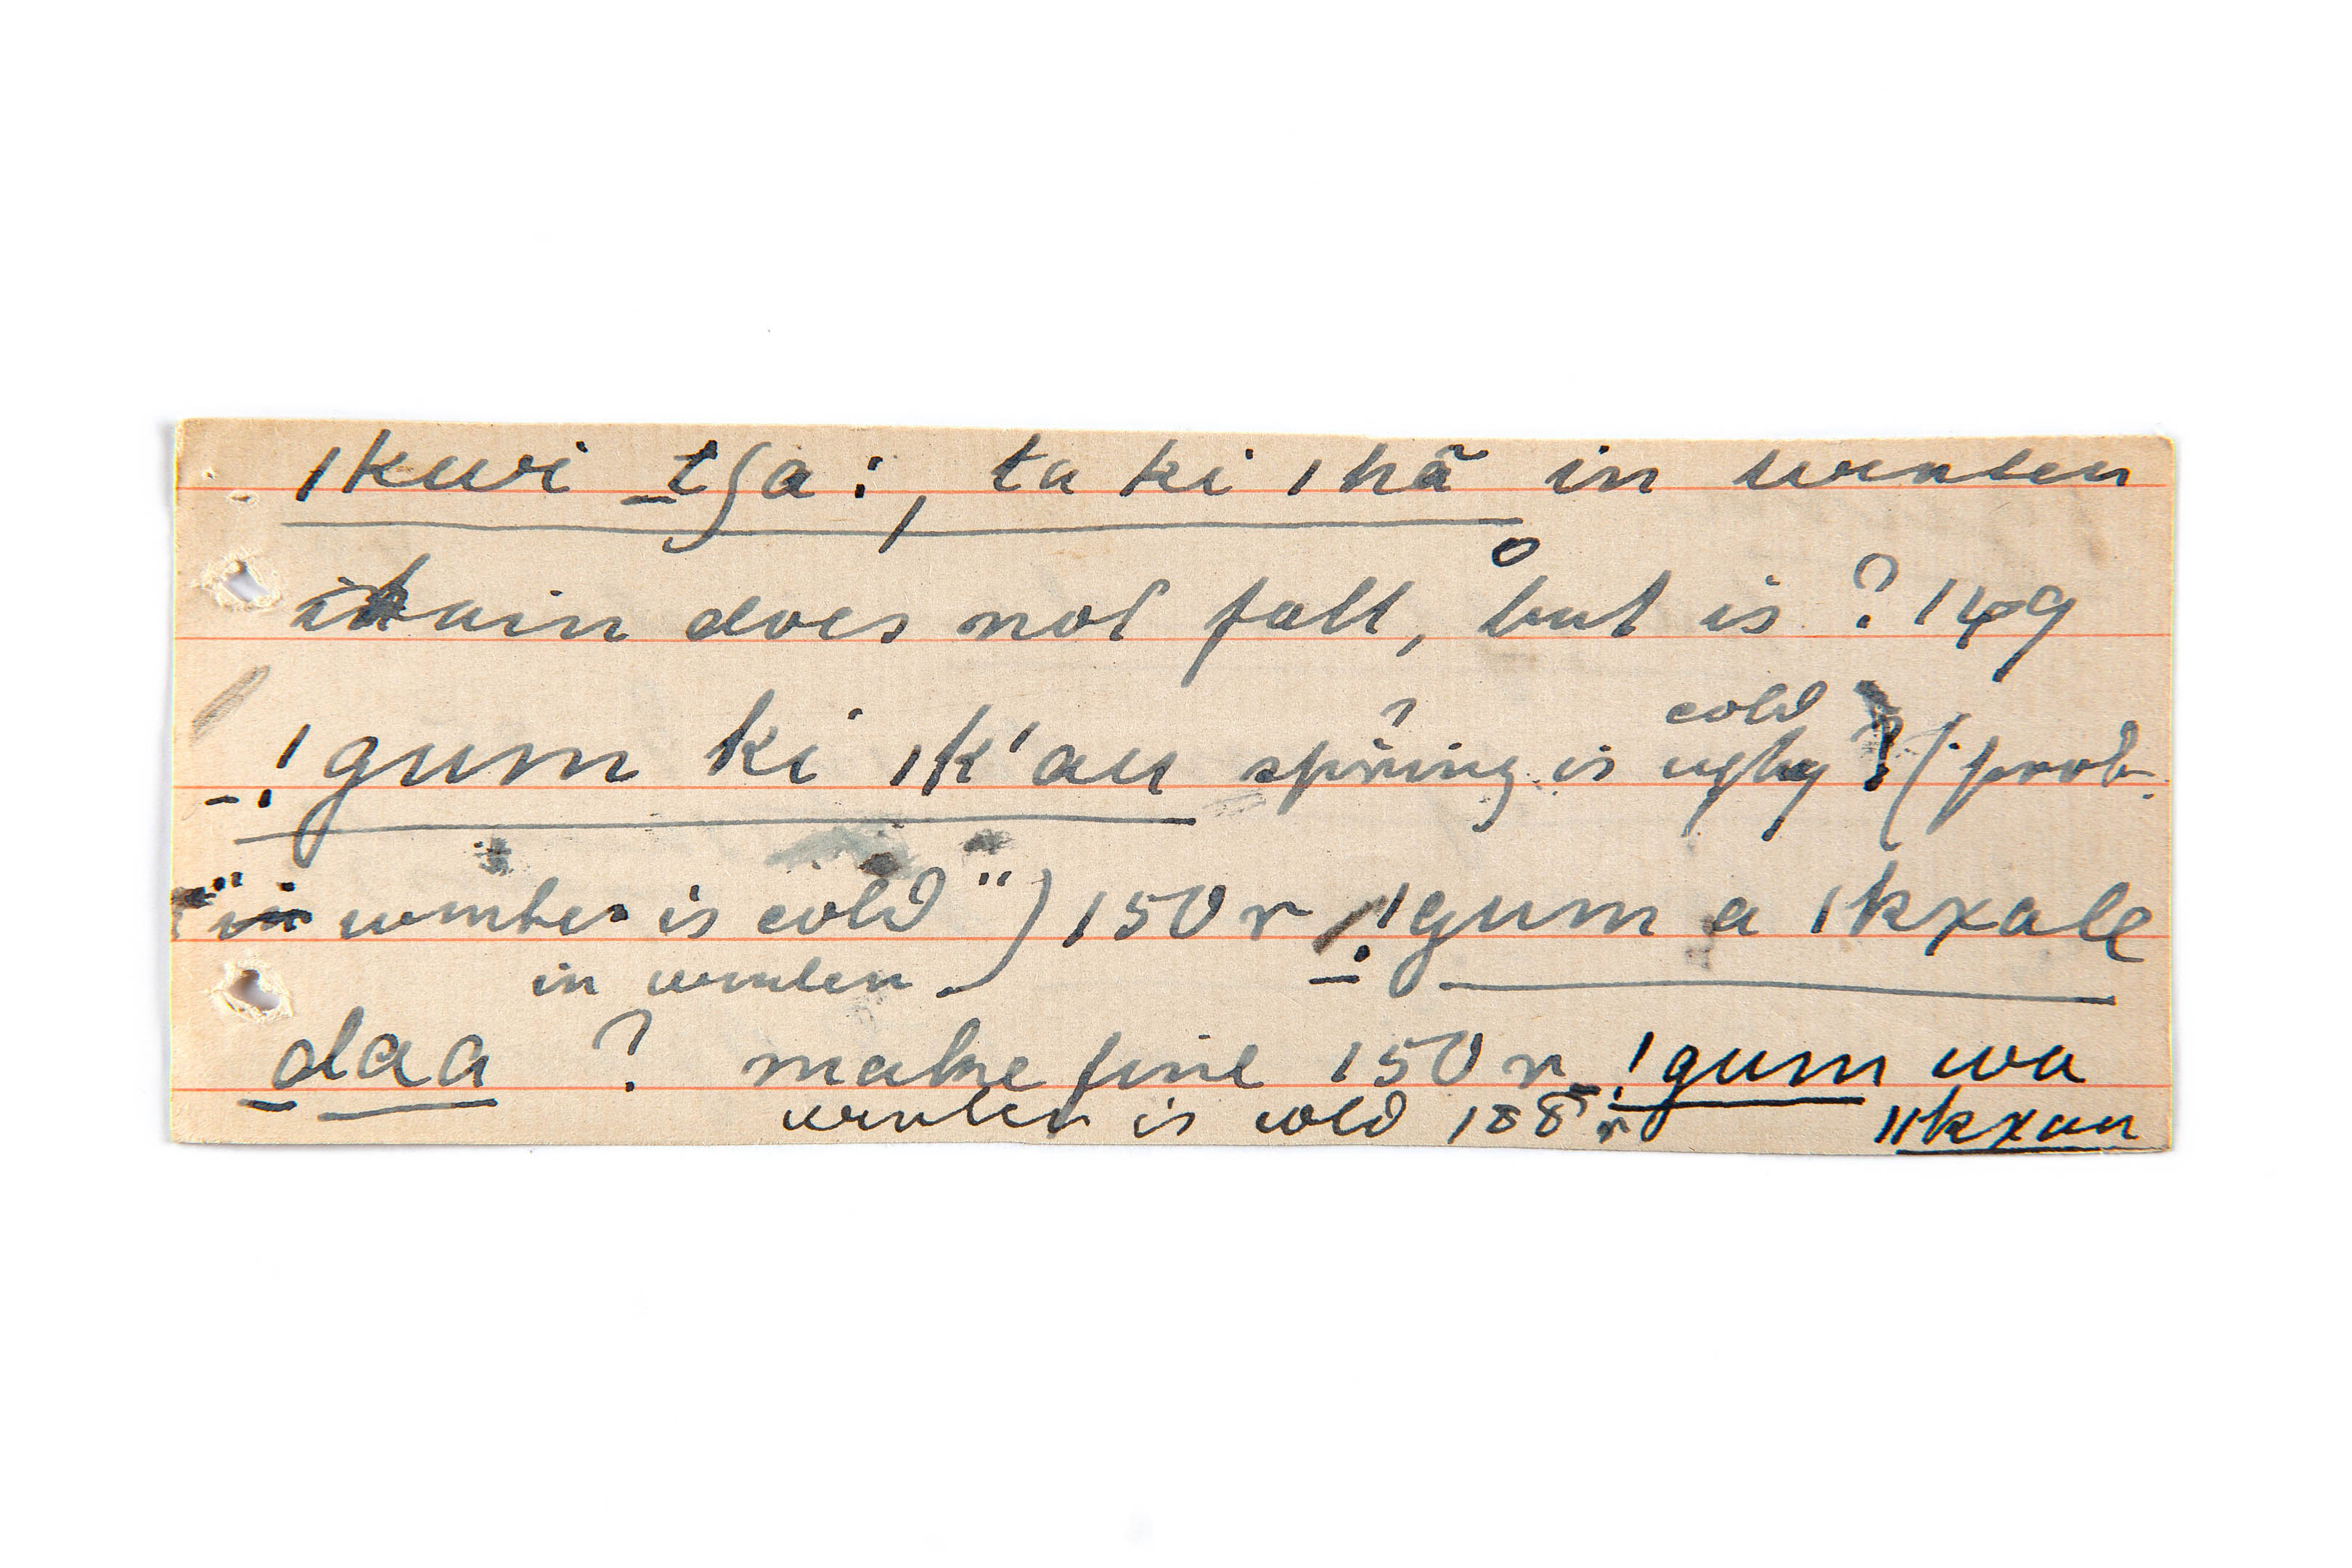 ǀkwi _tʃa:, ta ki ǀhã in winter
rain does not fall, but is ? 149
_ǃgum ki ǀk'au spring is ugly ? (prob.
cold
"winter is cold") 150 r _ǃgum a ǀkxale
in winter
daa ? make fine 150 r _ǃgum wa
winter is cold 188 r ǁkxau